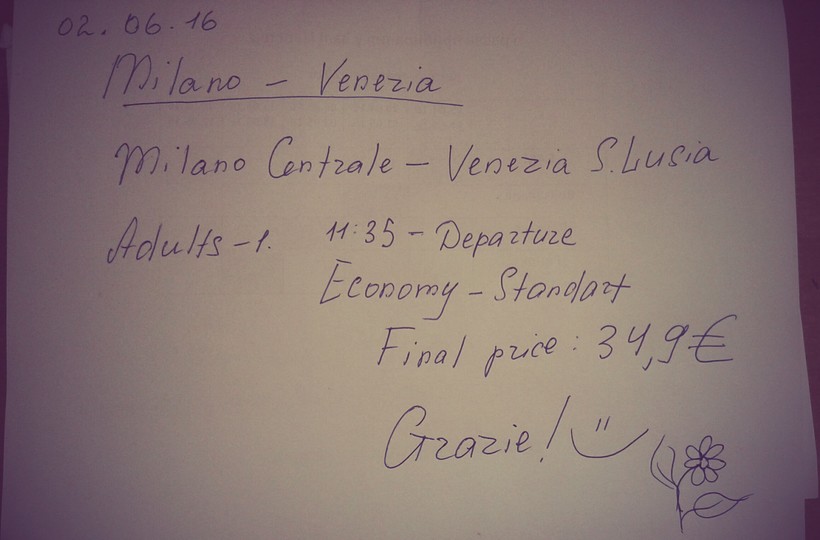 02.06.16
Milano - Venezia
Milano Centrale - Venezia S.Lusia
Adults - 1. 11:35 - Departure
Economy - Standart
Final price: 34,9€
Grazie!